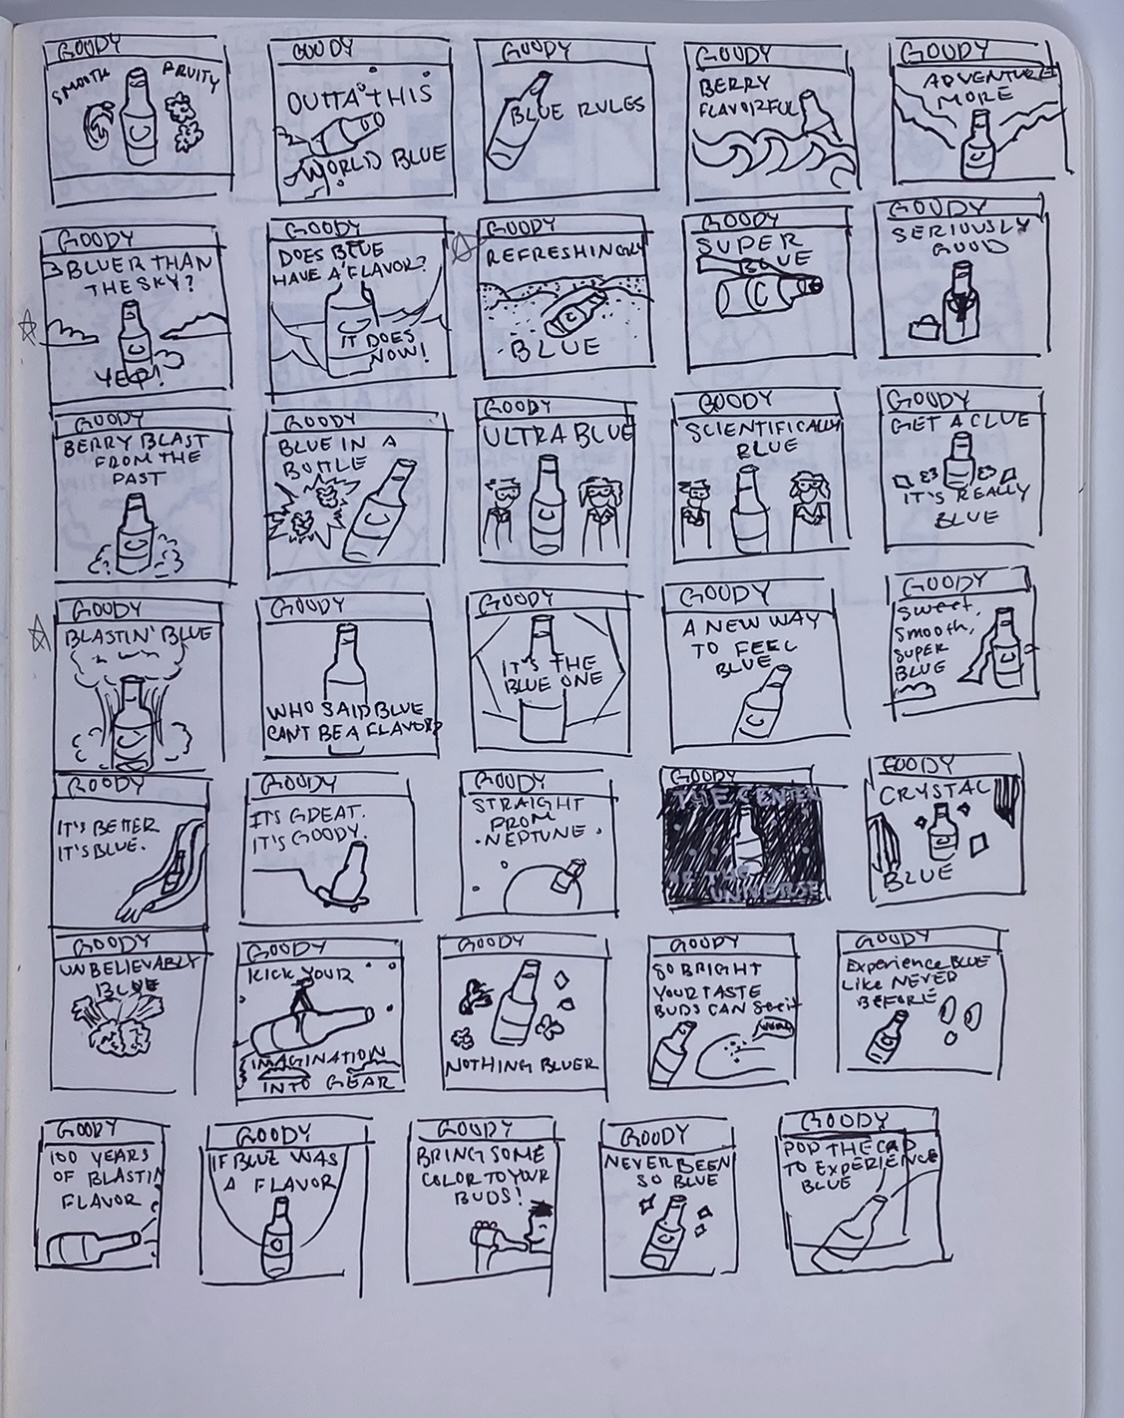 GOODY
SMOOTH
FRUITY
GOODY
OUTTA THIS
WORLD BLUE
GOODY
BLUE RULES
GOODY
BERRY
FLAVORFUL
GOODY
ADVENTURE
MORE
GOODY
BLUER THAN
THE SKY?
YEP!
GOODY
DOES BLUE
HAVE A FLAVOR?
IT DOES
NOW!
GOODY
REFRESHINGLY
BLUE
GOODY
SUPER
BLUE
GOODY
SERIOUSLY
GOOD
GOODY
BERRY BLAST
FROM THE
PAST
GOODY
BLUE IN A
BOTTLE
GOODY
ULTRA BLUE
GOODY
SCIENTIFICALLY
BLUE
GOODY
GET A CLUE
IT'S REALLY
BLUE
GOODY
BLASTIN' BLUE
GOODY
WHO SAID BLUE
CAN'T BE A FLAVOR?
GOODY
IT'S THE
BLUE ONE
GOODY
A NEW WAY
TO FEEL
BLUE
GOODY
Sweet,
Smooth,
SUPER
BLUE
GOODY
IT'S BETTER
IT'S BLUE.
GOODY
ITS GREAT.
IT'S GOODY.
GOODY
STRAIGHT
FROM
NEPTUNE.
GOODY
THE CENTER
OF THE
UNIVERSE
GOODY
CRYSTAL
BLUE
GOODY
UNBELIEVABLY
BLUE
GOODY
KICK YOUR
IMAGINATION
INTO GEAR
GOODY
NOTHING BLUER
GOODY
SO BRIGHT
YOUR TASTE
BUDS CAN See it
GOODY
Experience BLUE
Like NEVER
BEFORE
GOODY
100 YEARS
OF BLASTIN
FLAVOR
GOODY
IF BLUE WAS
A FLAVOR
GOODY
BRING SOME
COLOR TO YOUR
BUDS!
GOODY
NEVER BEEN
SO BLUE
GOODY
POP THE CAP
TO EXPERIENCE
BLUE